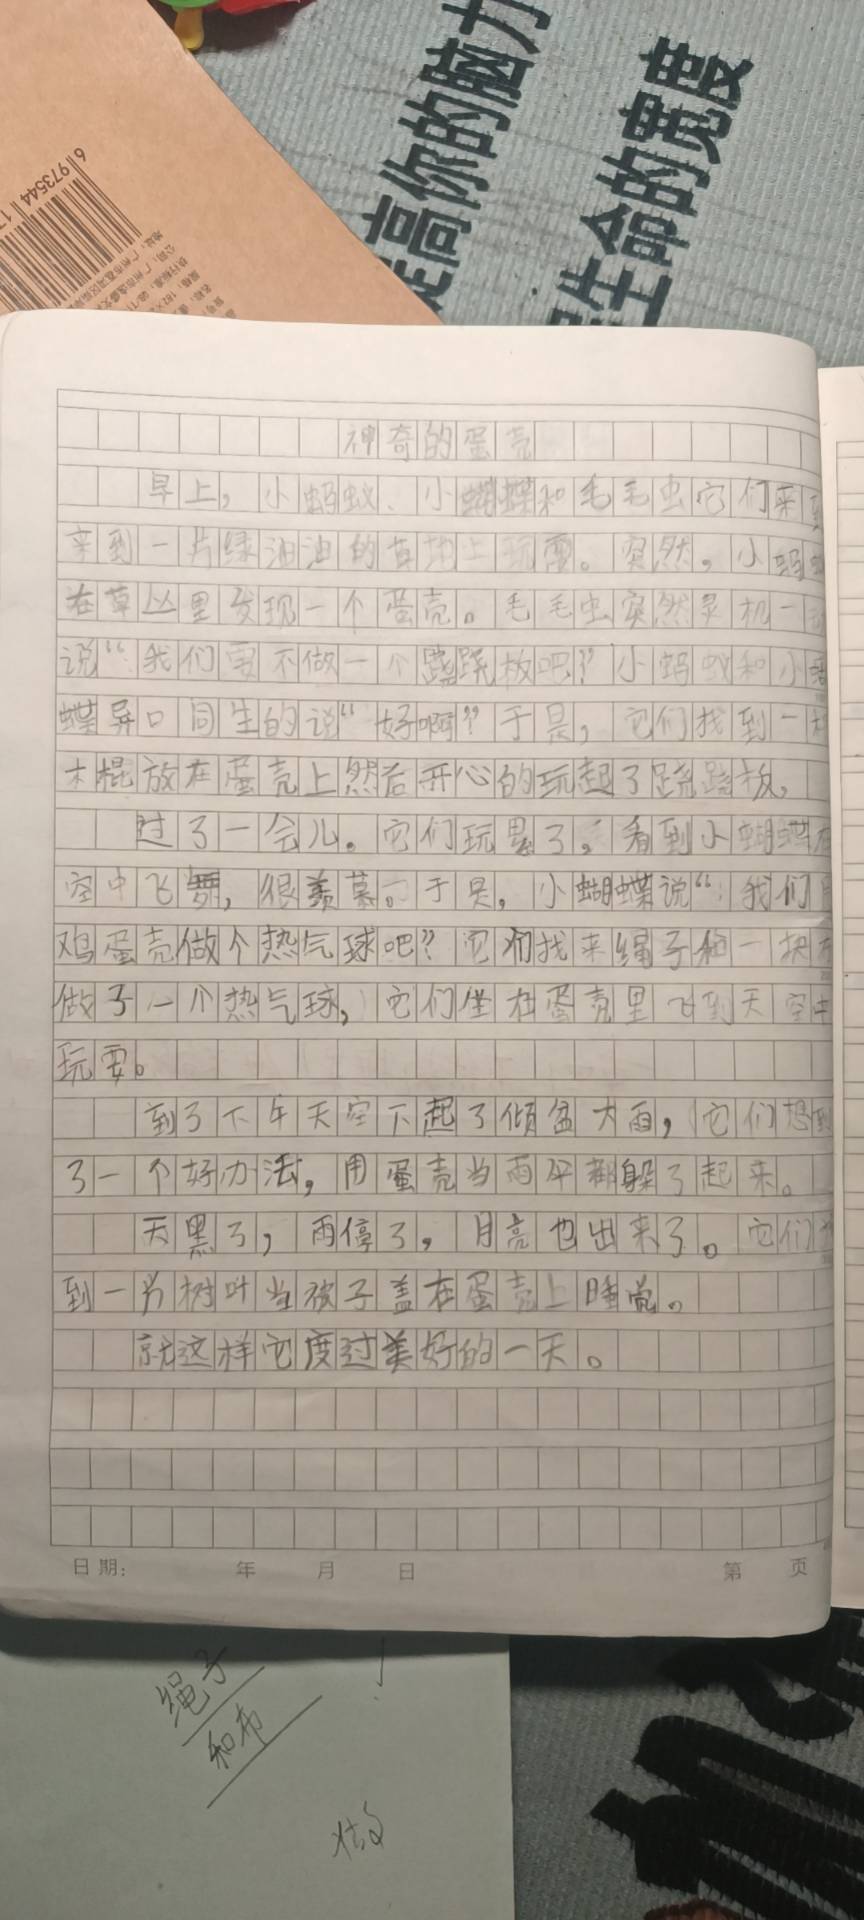 提高你的脑力
生命的宽度
6 973544 1
神奇的蛋壳
早上，小蚂蚁、小蝴蝶和毛毛虫它们来到
来到一片绿油油的草地上玩耍。突然，小蚂蚁
在草丛里发现一个蛋壳。毛毛虫突然灵机一动
说“我们要不做一个跷跷板吧？小蚂蚁和小蝴
蝶异口同生的说“好啊”于是，它们找到一根
木棍放在蛋壳上然后开心的玩起了跷跷板，
过了一会儿。它们玩累了，看到小蝴蝶在
空中飞舞，很羡慕。于是，小蝴蝶说“我们用
鸡蛋壳做个热气球吧？它们找来绳子和一块布
做了一个热气球，它们坐在蛋壳里飞到天空中
玩耍。
到了下午天空下起了倾盆大雨，它们想到
了一个好办法，用蛋壳当雨伞都躲了起来。
天黑了，雨停了，月亮也出来了。它们
到一片树叶当被子盖在蛋壳上睡觉。
就这样它度过美好的一天。
日期： 年 月 日 第 页
绳子
和布